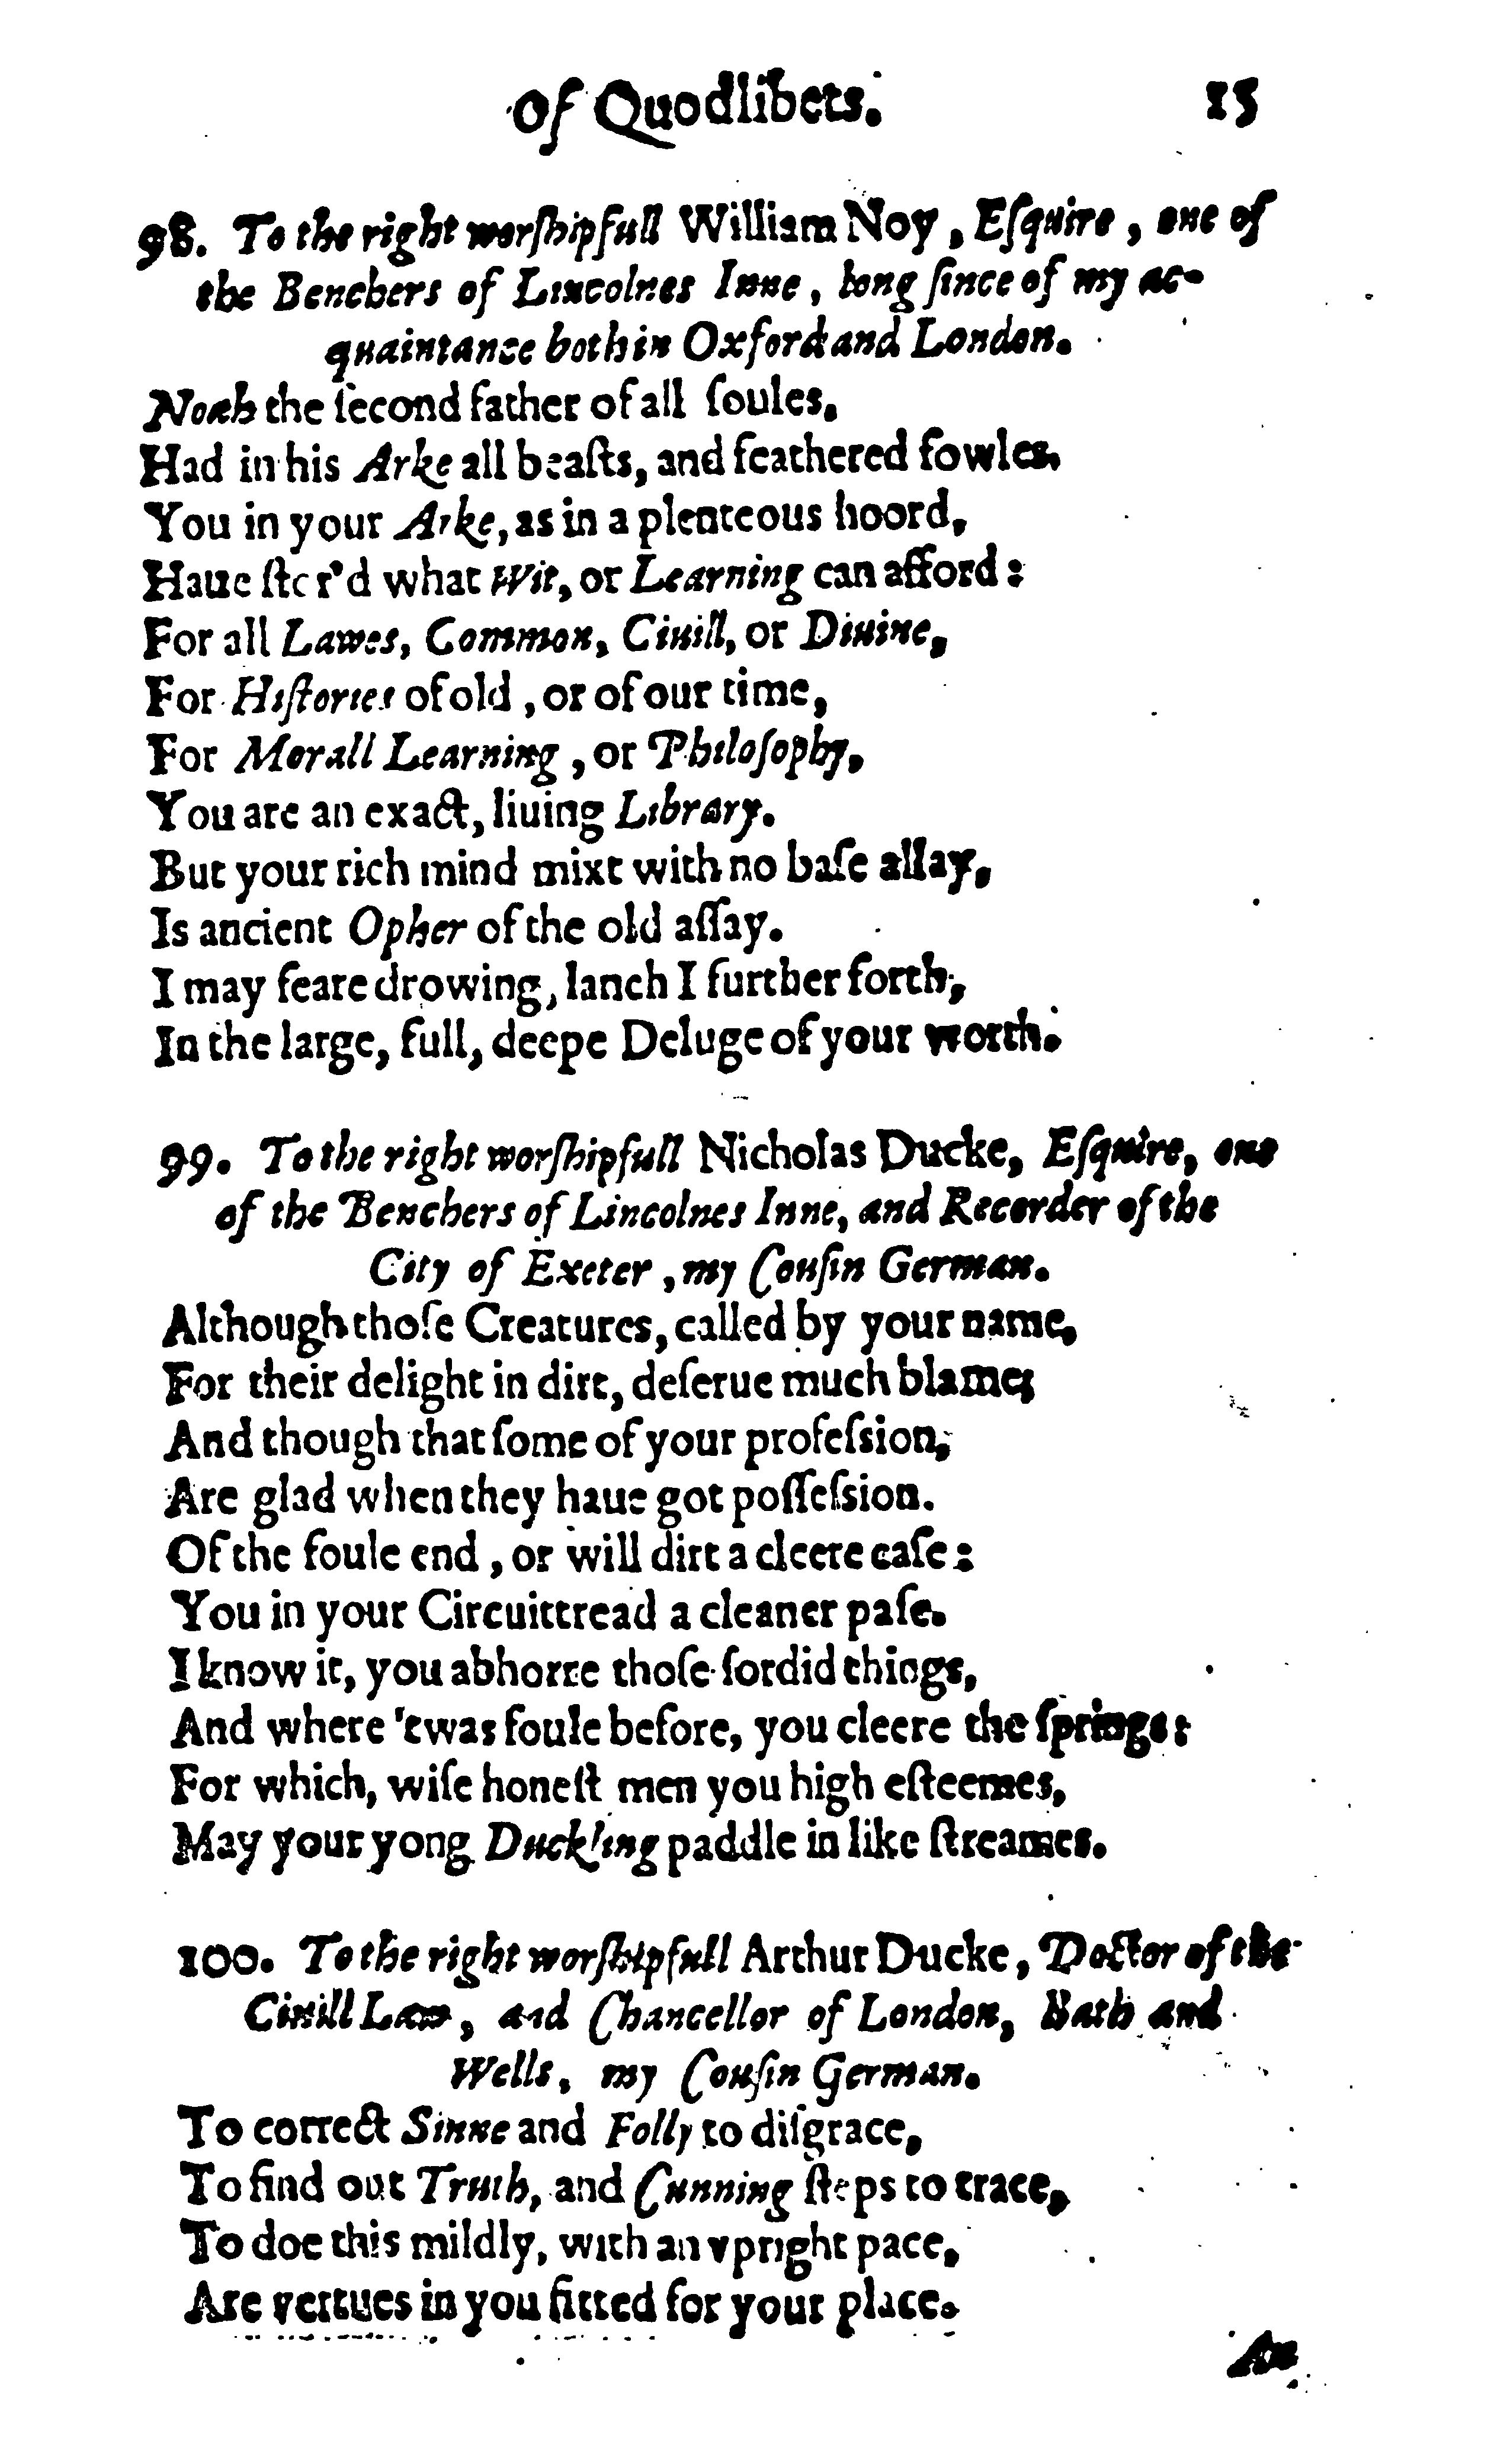 of Quodlibets. 15
98. To the right worſhipfull William Noy, Eſquire, one of
the Benchers of Lincolnes Inne, long ſince of my ac-
quaintance both in Oxford and London.
Noah the ſecond father of all ſoules,
Had in his Arke all beaſts, and feathered fowles,
You in your Arke, as in a plenteous hoord,
Haue ſtor'd what Wit, or Learning can afford:
For all Lawes, Common, Ciuill, or Diuine,
For Hiſtories of old, or of our time,
For Morall Learning, or Philoſophy,
You are an exact, liuing Library.
But your rich mind mixt with no baſe allay,
Is ancient Opher of the old aſſay.
I may feare drowing, lanch I further forth,
In the large, full, deepe Deluge of your worth.
99. To the right worſhipfull Nicholas Ducke, Eſquire, one
of the Benchers of Lincolnes Inne, and Recorder of the
City of Exeter, my Couſin German.
Although thoſe Creatures, called by your name,
For their delight in dirt, deſerue much blame;
And though that ſome of your profeſsion,
Are glad when they haue got poſſeſsion.
Of the foule end, or will dirt a cleere caſe:
You in your Circuit tread a cleaner paſe.
I know it, you abhorre thoſe ſordid things,
And where 'twas foule before, you cleere the ſprings:
For which, wiſe honeſt men you high eſteemes,
May your yong Duckling paddle in like ſtreames.
100. To the right worſhipfull Arthur Ducke, Doctor of the
Ciuill Law, and Chancellor of London, Bath and
Wells, my Couſin German.
To correct Sinne and Folly to diſgrace,
To find out Truth, and Cunning ſteps to trace,
To doe this mildly, with an vpright pace,
Are vertues in you fitted for your place.